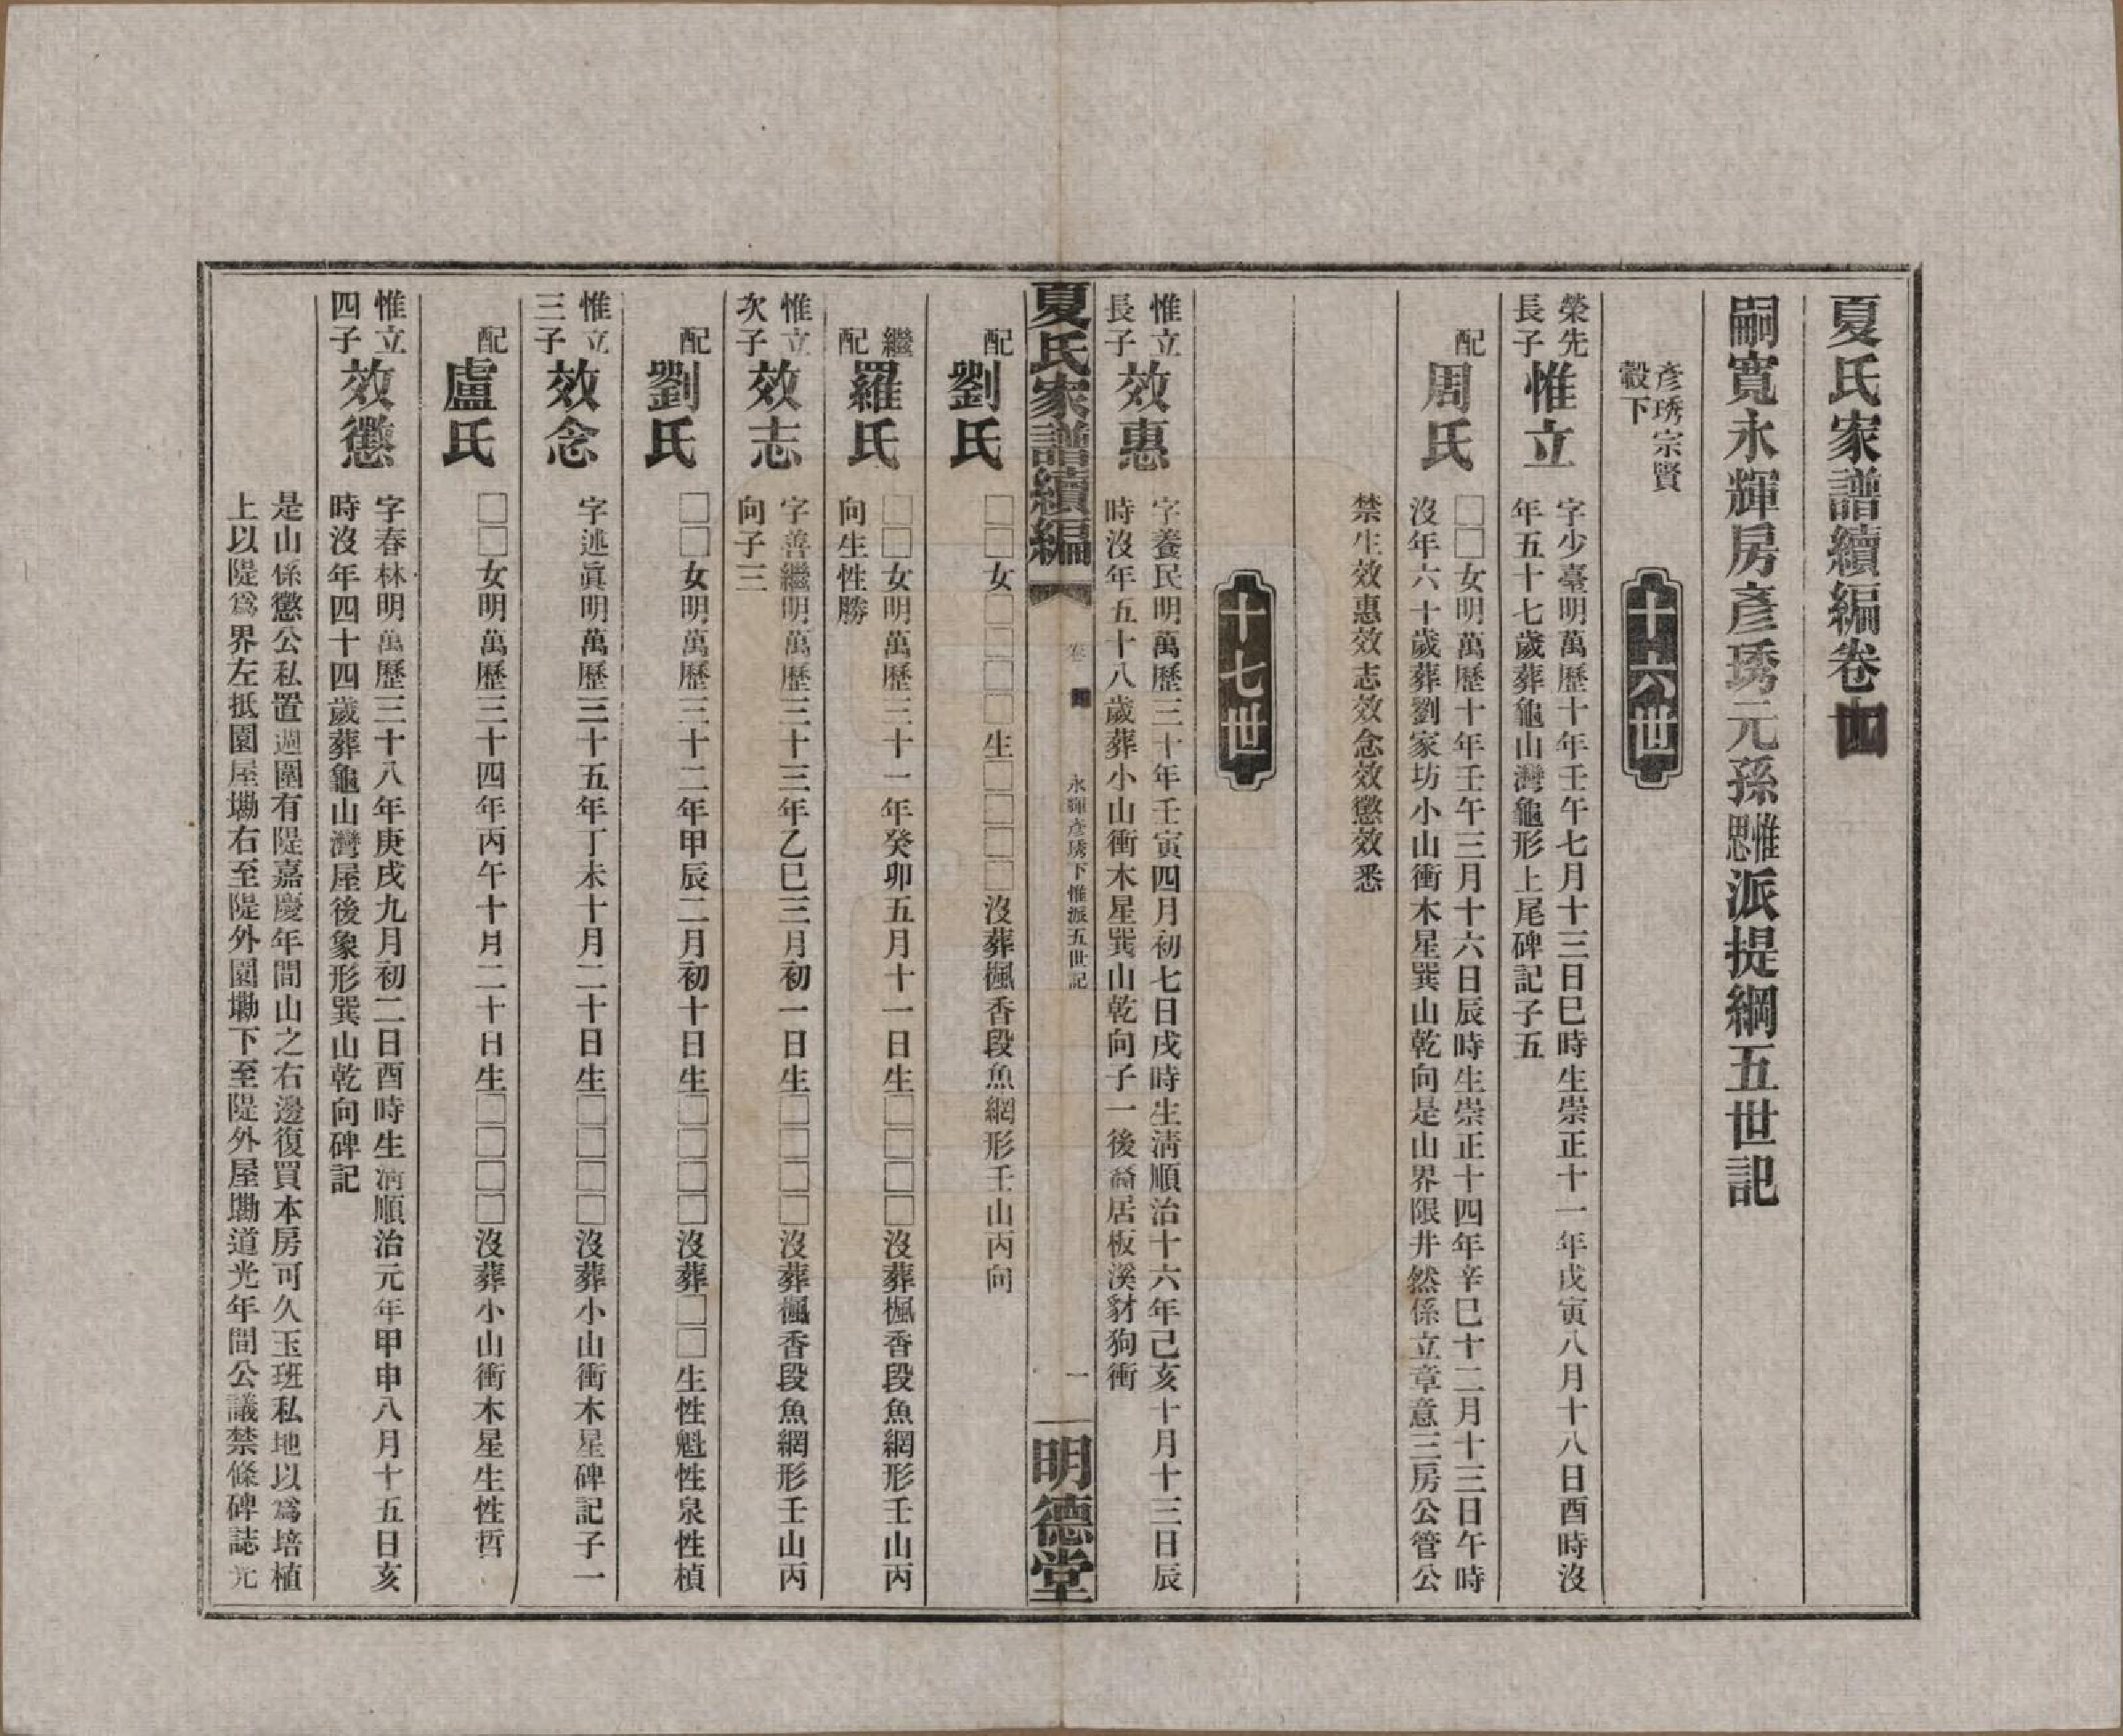 夏氏家譜續編卷
嗣寬永輝房彥琇元孫思惟派提綱五世記
彥琇宗賢
轂下
十六世
榮先
長子
惟立
字少臺明萬歷十年壬午七月十三日巳時生崇正十一年戊寅八月十八日酉時沒
年五十七歲葬龜山灣龜形上尾碑記子五
配
周氏
□□女明萬歷十年壬午三月十六日辰時生崇正十四年辛巳十二月十三日午時
沒年六十歲葬劉家坊小山衝木星巽山乾向是山界限井然係立章意三房公管公
禁生效惠效志效念效懲效悉
十七世
惟立
長子
效惠
字養民明萬歷三十年壬寅四月初七日戌時生淸順治十六年己亥十月十三日辰
時沒年五十八歲葬小山衝木星巽山乾向子一後裔居板溪豺狗衝
夏氏家譜續編
卷
永輝彥琇下惟派五世記
一
明德堂
配
劉氏
□□女□□□□生□□□□沒葬楓香段魚網形壬山丙向
繼
配
羅氏
□□女明萬歷三十一年癸卯五月十一日生□□□□沒葬楓香段魚網形壬山丙
向生性勝
惟立
次子
效志
字善繼明萬歷三十三年乙巳三月初一日生□□□□沒葬楓香段魚網形壬山丙
向子三
配
劉氏
□□女明萬歷三十二年甲辰二月初十日生□□□□沒葬□□生性魁性泉性楨
惟立
三子
效念
字述眞明萬歷三十五年丁未十月二十日生□□□□沒葬小山衝木星碑記子一
配
盧氏
□□女明萬歷三十四年丙午十月二十日生□□□□沒葬小山衝木星生性哲
惟立
四子
效懲
字春林明萬歷三十八年庚戌九月初二日酉時生淸順治元年甲申八月十五日亥
時沒年四十四歲葬龜山灣屋後象形巽山乾向碑記
是山係懲公私置週圍有隄嘉慶年間山之右邊復買本房可久玉班私地以爲培植
上以隄爲界左抵園屋墈右至隄外園墈下至隄外屋墈道光年間公議禁條碑誌光